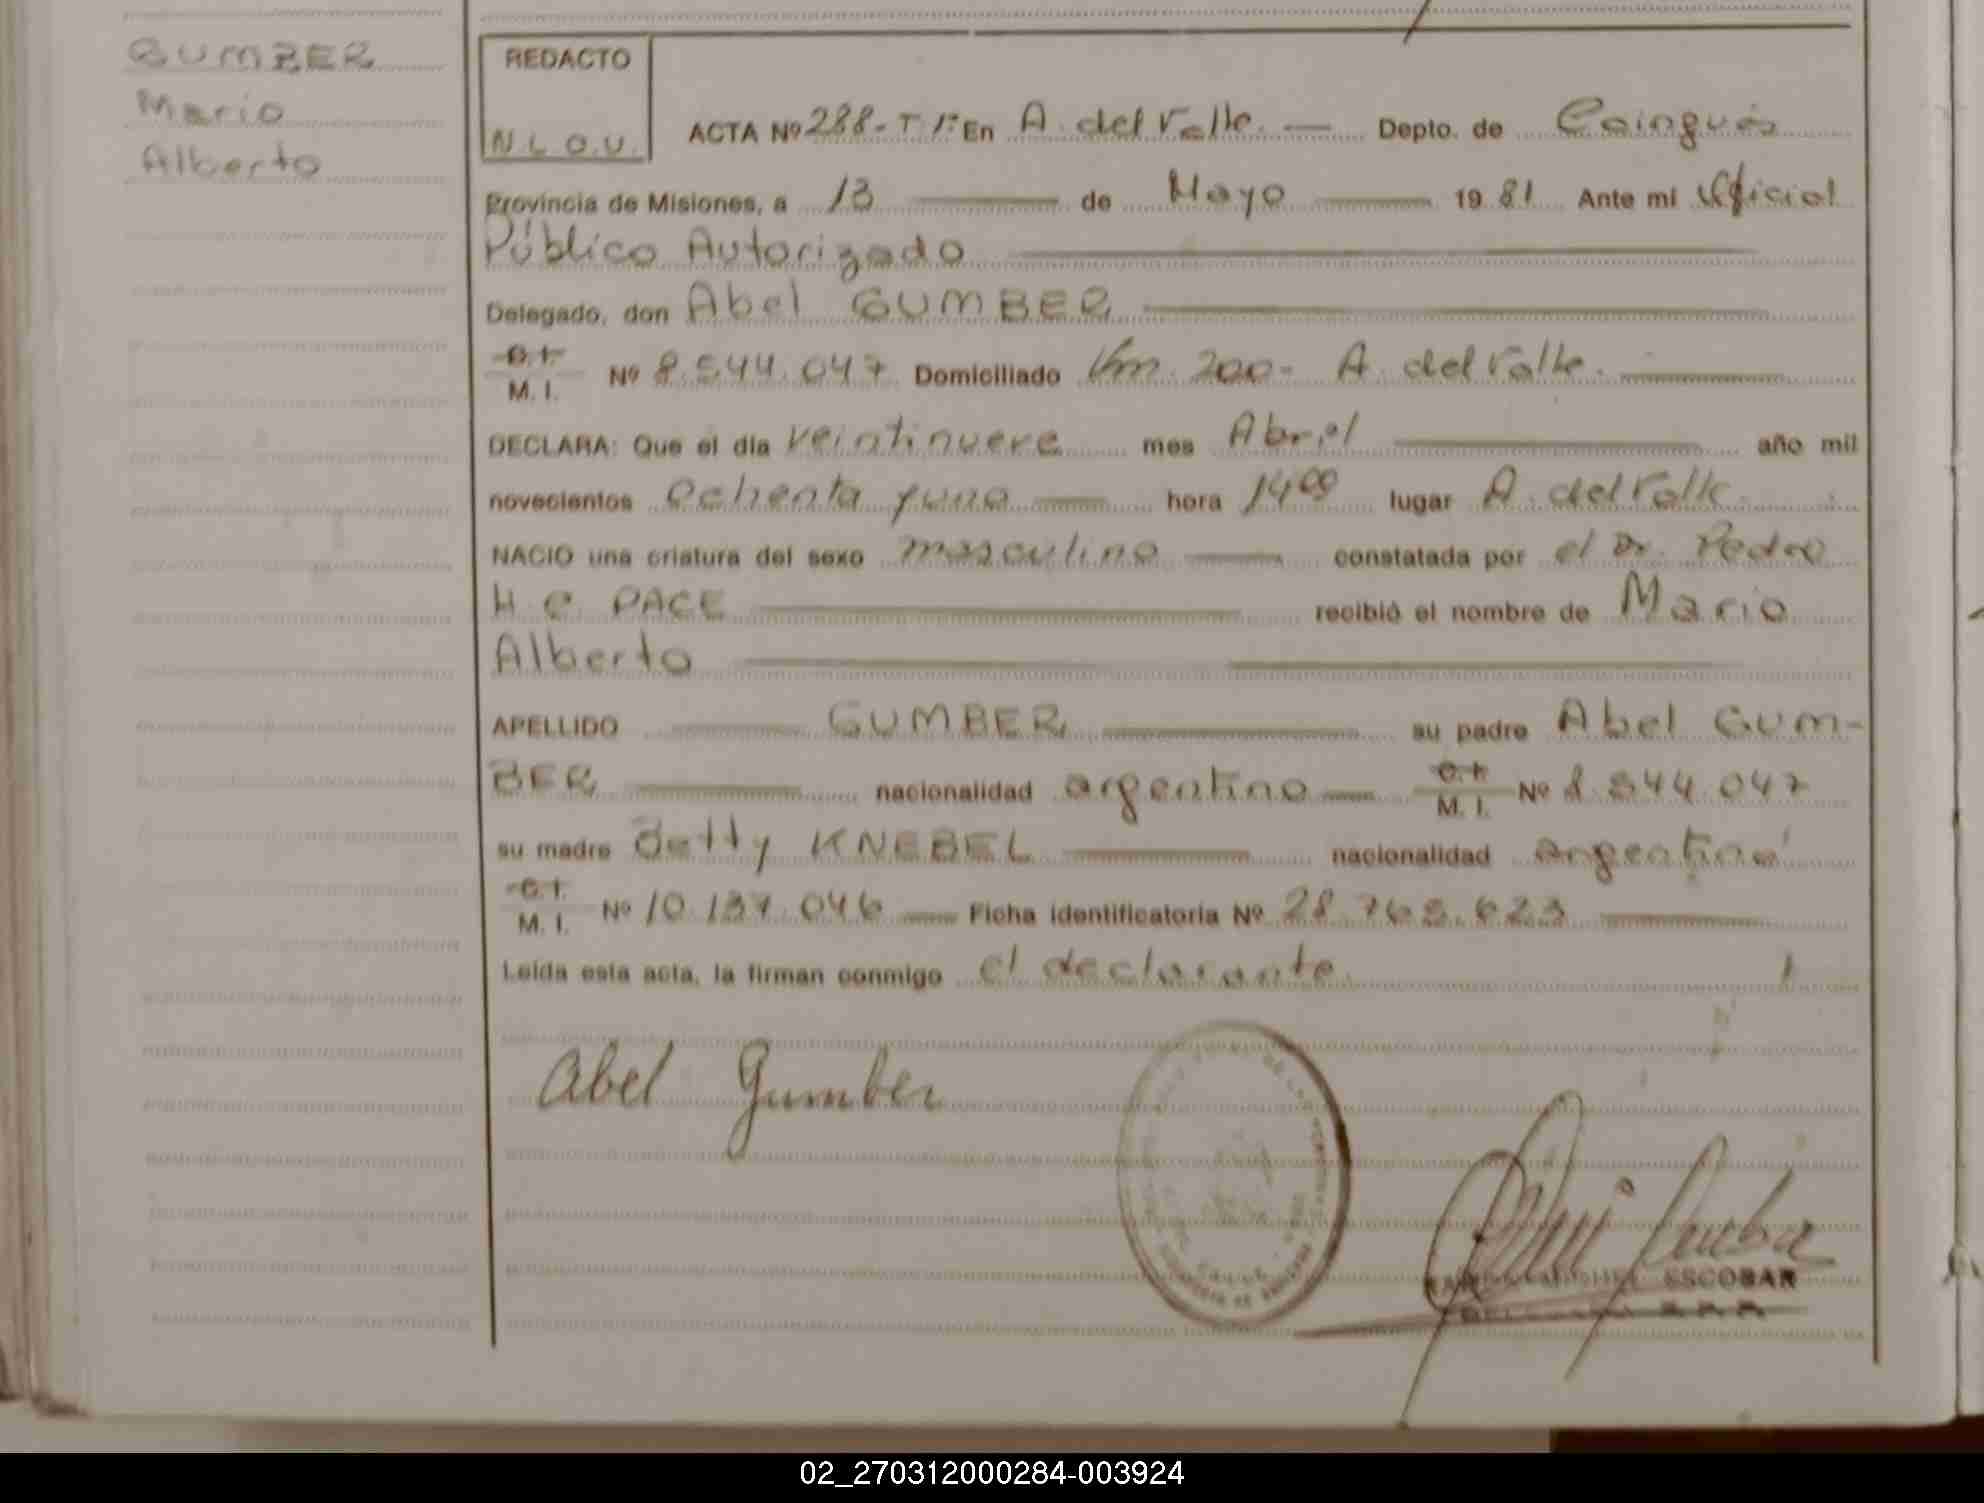 GUMBER
Mario
Alberto
REDACTO
N.L.O.U.
ACTA Nº 288-T 1º En A. del Valle. — Depto. de Cainguás
Provincia de Misiones, a 13 — de Mayo — 19 81 Ante mi Oficial
Público Autorizado
Delegado, don Abel GUMBER
C. I. / M. I. Nº 8.544.047 Domiciliado Km. 200- A. del Valle.
DECLARA: Que el dia veintinueve mes Abril — año mil
novecientos Ochenta y uno — hora 14⁰⁰ lugar A. del Valle.
NACIO una criatura del sexo masculino — constatada por el Dr. Pedro
H. C. PACE — recibió el nombre de Mario
Alberto
APELLIDO — GUMBER — su padre Abel GUM-
BER — nacionalidad argentino — C. I. / M. I. Nº 8.544.047
su madre Betty KNEBEL — nacionalidad argentina
C. I. / M. I. Nº 10.137.046 — Ficha identificatoria Nº 28.765.623
Leída esta acta, la firman conmigo el declarante.
Abel Gumber
ESCOBAR
02_270312000284-003924